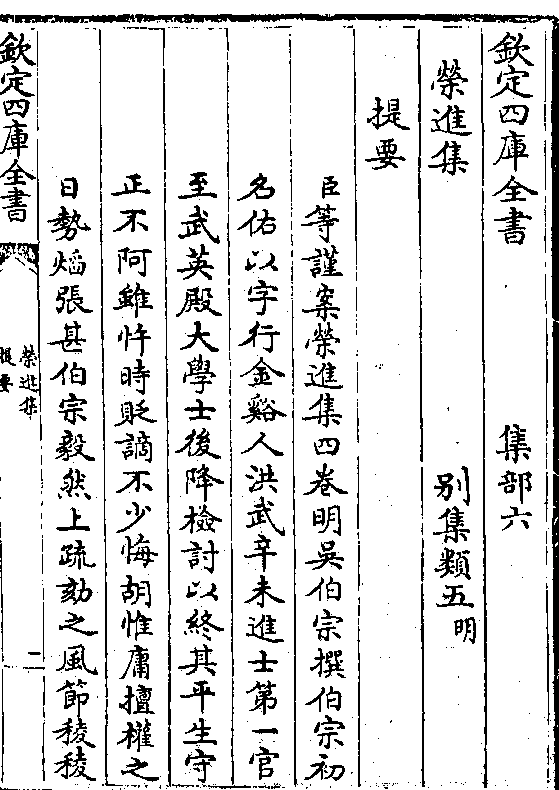 欽定四庫全書　集部六
榮進集　別集類五明
提要
臣等謹案榮進集四卷明吳伯宗撰伯宗初
名佑以字行金谿人洪武辛未進士第一官
至武英殿大學士後降檢討以終其平生守
正不阿雖忤時貶謫不少悔胡惟庸擅權之
日勢熖張甚伯宗毅然上疏劾之風節稜稜
欽定四庫全書
榮進集
提要
二